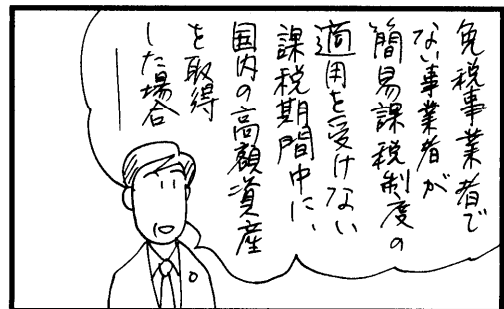 免税事業者で
ない事業者が
簡易課税制度の
適用を受けない
課税期間中に、
国内の高額資産
を取得
した場合